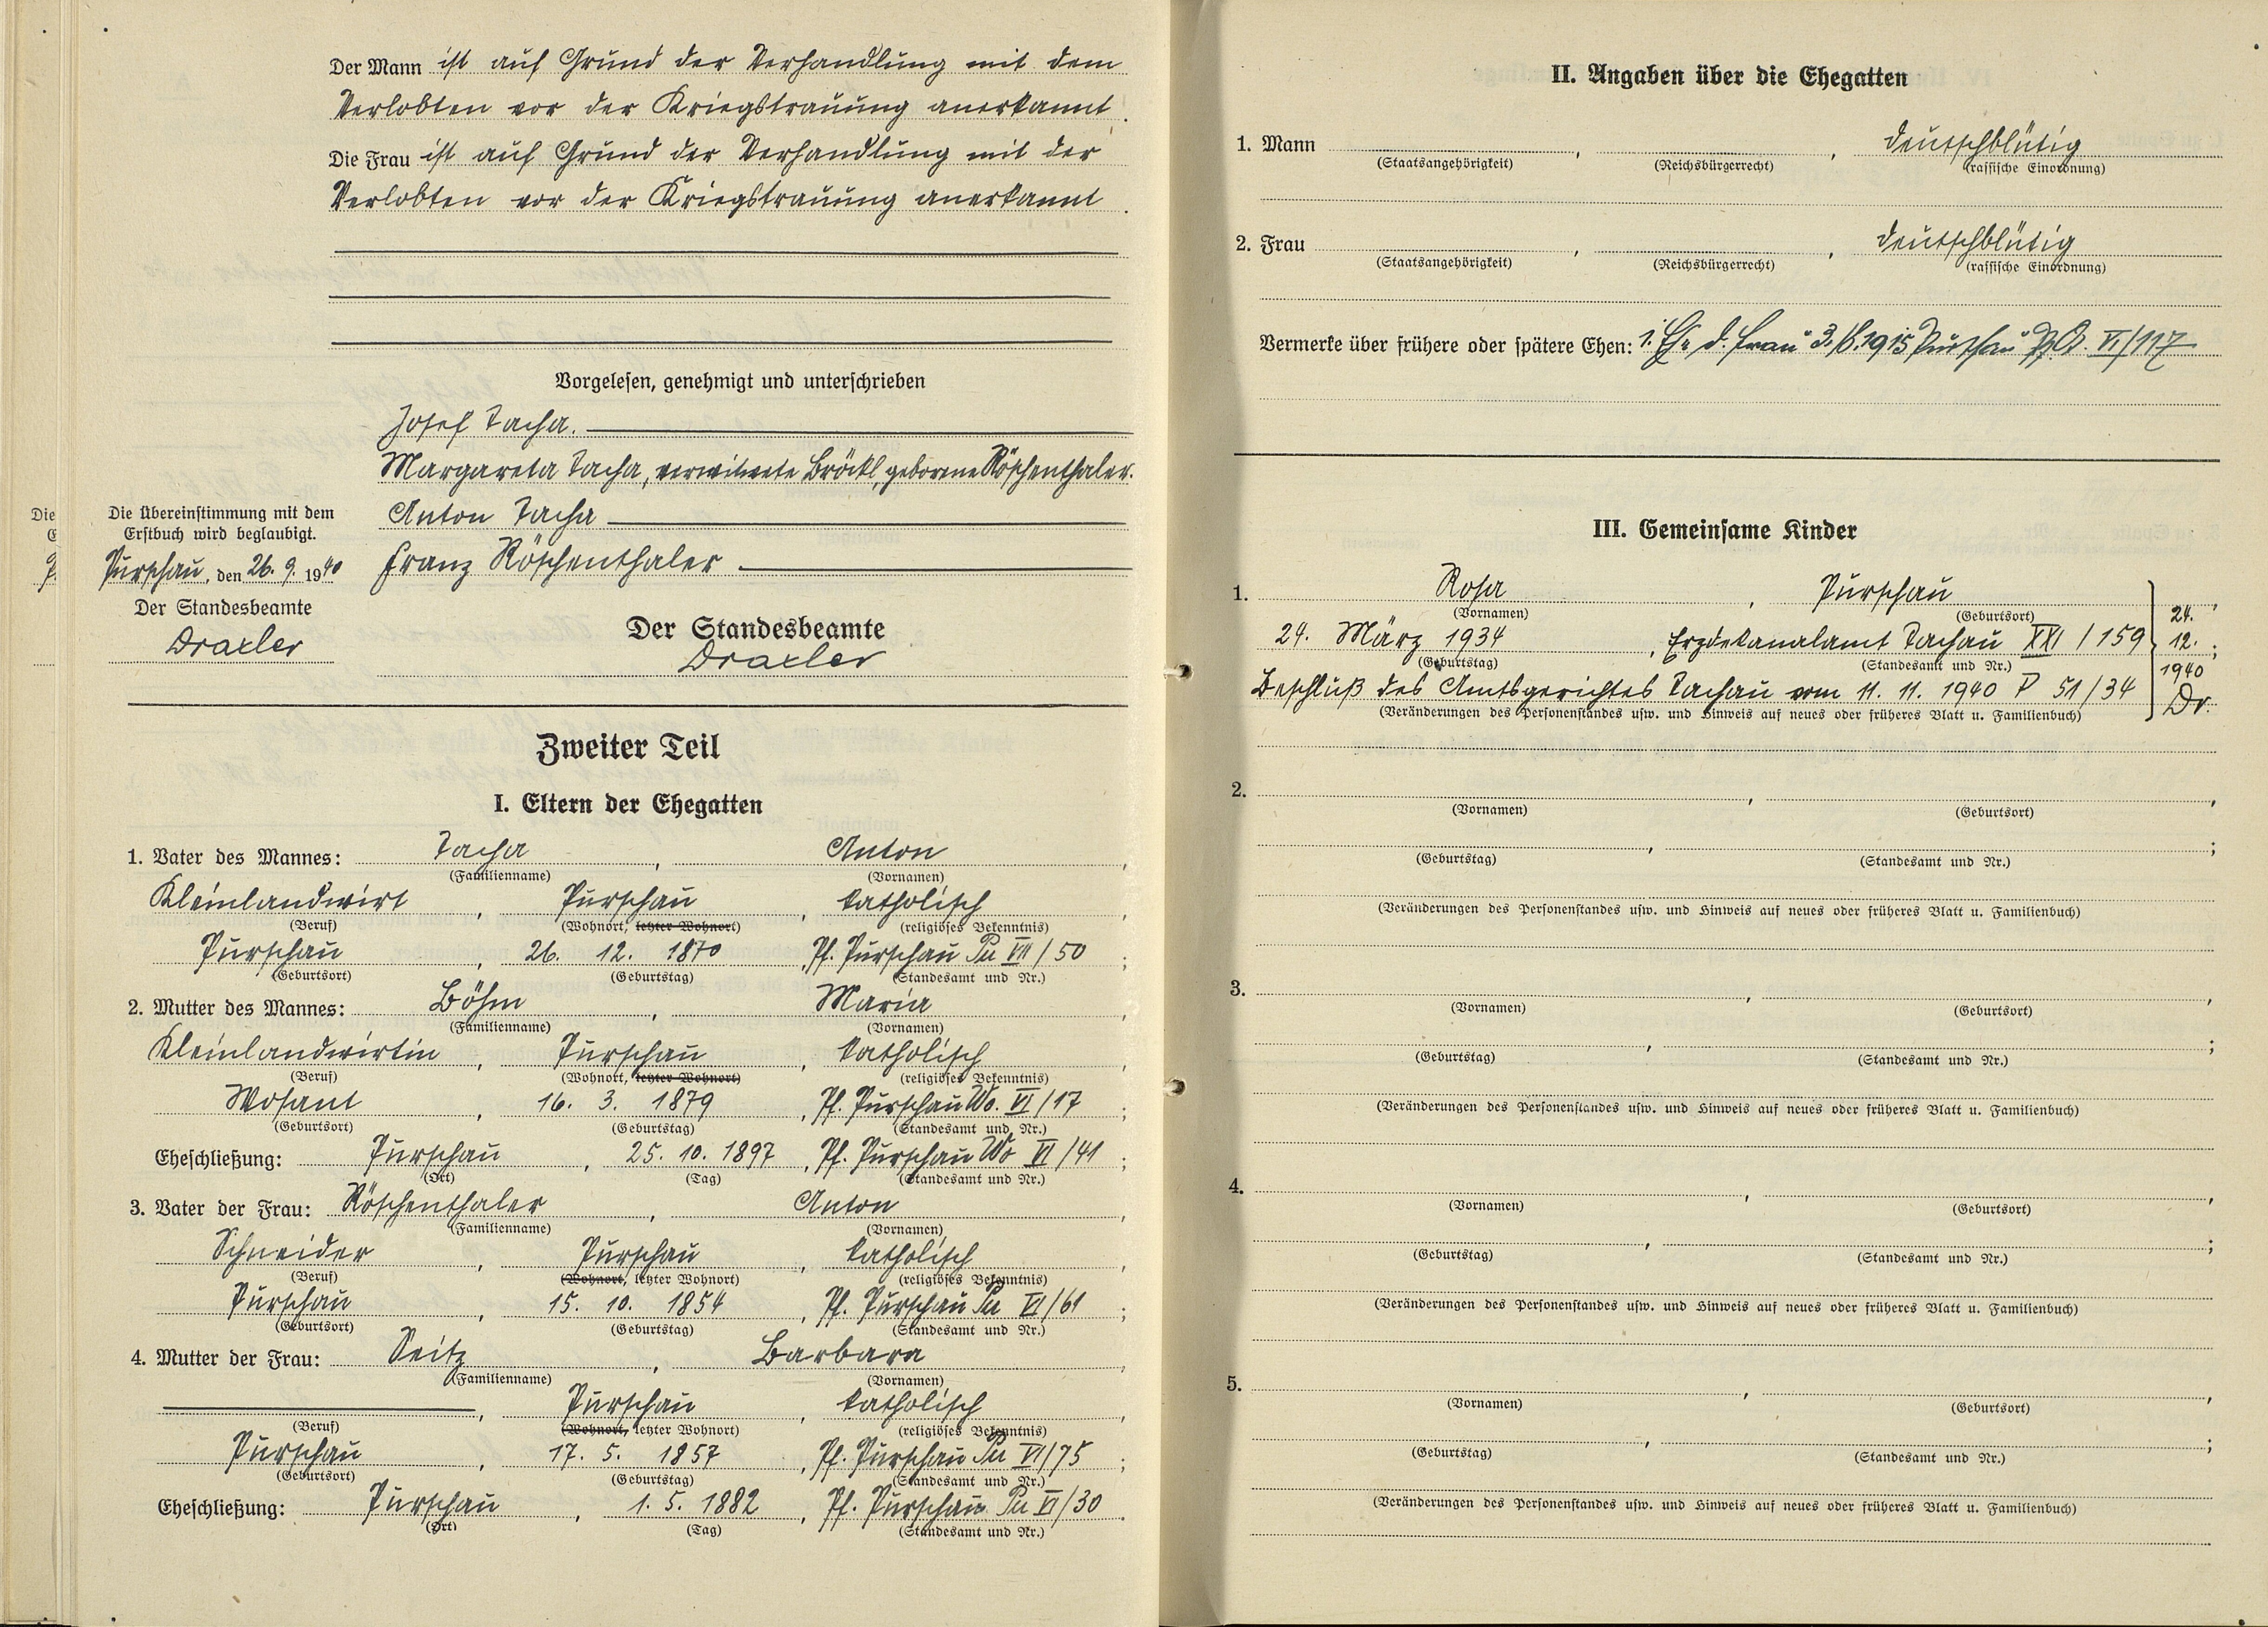 Der Mann ist auf Grund der Verhandlung mit dem
Verlobten vor der Kriegstrauung anerkannt.
Die Frau ist auf Grund der Verhandlung mit der
Verlobten vor der Kriegstrauung anerkannt.
Vorgelesen, genehmigt und unterschrieben
Josef Tacha.
Margareta Tacha, verwitwete Bröckl, geborene Röschenthaler.
Anton Tacha
Franz Röschenthaler
Die Übereinstimmung mit dem
Erstbuch wird beglaubigt.
Purschau, den 26. 9. 1940
Der Standesbeamte
Draxler
Der Standesbeamte
Draxler
Zweiter Teil
I. Eltern der Ehegatten
1. Vater des Mannes: Tacha, Anton,
(Familienname) (Vornamen)
Kleinlandwirt, Purschau, katholisch,
(Beruf) (Wohnort, letzter Wohnort) (religiöses Bekenntnis)
Purschau, 26. 12. 1870, Pf. Purschau Pu VII/50;
(Geburtsort) (Geburtstag) (Standesamt und Nr.)
2. Mutter des Mannes: Böhm, Maria,
(Familienname) (Vornamen)
Kleinlandwirtin, Purschau, katholisch,
(Beruf) (Wohnort, letzter Wohnort) (religiöses Bekenntnis)
Wosant, 16. 3. 1879, Pf. Purschau Wo. VI/17;
(Geburtsort) (Geburtstag) (Standesamt und Nr.)
Eheschließung: Purschau, 25. 10. 1897, Pf. Purschau Wo VI/41;
(Ort) (Tag) (Standesamt und Nr.)
3. Vater der Frau: Röschenthaler, Anton,
(Familienname) (Vornamen)
Schneider, Purschau, katholisch,
(Beruf) (Wohnort, letzter Wohnort) (religiöses Bekenntnis)
Purschau, 15. 10. 1854, Pf. Purschau Pu VI/61;
(Geburtsort) (Geburtstag) (Standesamt und Nr.)
4. Mutter der Frau: Seitz, Barbara,
(Familienname) (Vornamen)
, Purschau, katholisch,
(Beruf) (Wohnort, letzter Wohnort) (religiöses Bekenntnis)
Purschau, 17. 5. 1857, Pf. Purschau Pu VI/75;
(Geburtsort) (Geburtstag) (Standesamt und Nr.)
Eheschließung: Purschau, 1. 5. 1882, Pf. Purschau Pu VI/30.
(Ort) (Tag) (Standesamt und Nr.)
II. Angaben über die Ehegatten
1. Mann , , deutschblütig
(Staatsangehörigkeit) (Reichsbürgerrecht) (rassische Einordnung)
2. Frau , , deutschblütig
(Staatsangehörigkeit) (Reichsbürgerrecht) (rassische Einordnung)
Vermerke über frühere oder spätere Ehen: 1. Ehe d. Frau 1915 Purschau VI/117
III. Gemeinsame Kinder
1. Rosa, Purschau,
(Vornamen) (Geburtsort)
24. März 1934, Erzdekanalamt Tachau XXI/159;
(Geburtstag) (Standesamt und Nr.)
Beschluß des Amtsgerichtes Tachau vom 11. 11. 1940 P 51/34
(Veränderungen des Personenstandes usw. und Hinweis auf neues oder früheres Blatt u. Familienbuch)
24.
12.
1940
Dr.
2. , ,
(Vornamen) (Geburtsort)
, ;
(Geburtstag) (Standesamt und Nr.)
(Veränderungen des Personenstandes usw. und Hinweis auf neues oder früheres Blatt u. Familienbuch)
3. , ,
(Vornamen) (Geburtsort)
, ;
(Geburtstag) (Standesamt und Nr.)
(Veränderungen des Personenstandes usw. und Hinweis auf neues oder früheres Blatt u. Familienbuch)
4. , ,
(Vornamen) (Geburtsort)
, ;
(Geburtstag) (Standesamt und Nr.)
(Veränderungen des Personenstandes usw. und Hinweis auf neues oder früheres Blatt u. Familienbuch)
5. , ,
(Vornamen) (Geburtsort)
, ;
(Geburtstag) (Standesamt und Nr.)
(Veränderungen des Personenstandes usw. und Hinweis auf neues oder früheres Blatt u. Familienbuch)